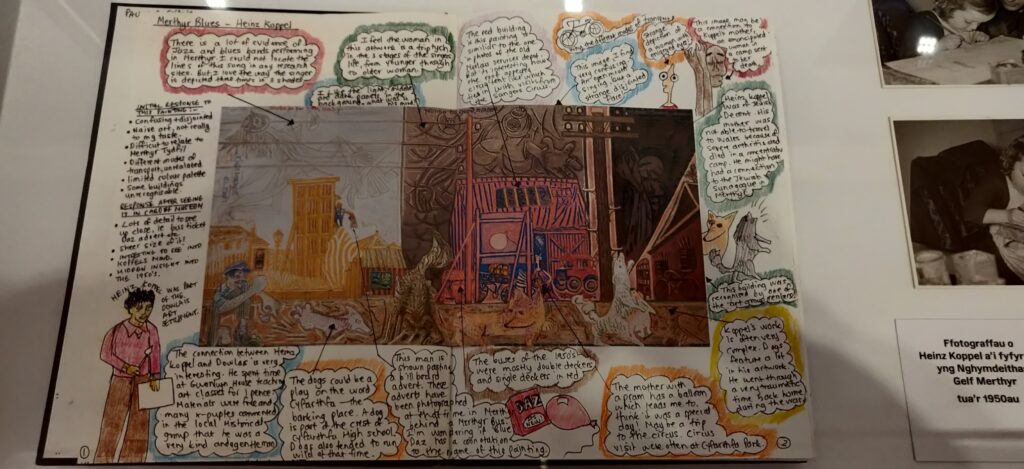 PAU
Merthyr Blues – Heinz Koppel
There is a lot of evidence of
Jazz and blues bands performing
in Merthyr. I could not locate the
lines of this song in any research
sites. But I love the way the singer
is depicted three times in 3 shades
I feel the woman in
this artwork is a triptych
in the 3 stages of the singers
life, from younger through
to older woman.
The red building
in this painting is
familiar to the one
of the
services depot
but is interesting how
it also appears
circus tent which
links with
the Sangers Circus
This image may be
a connection to
Koppel's mother,
an emancipated
woman in
camp until
her death.
Heinz Koppel
was of Jewish
Decent. His
mother was
not able to travel
to Wales because of
severe arthritis and
died in a concentration
camp. He might have
had a connection
to the Jewish
Synagogue in
Merthyr.
INITIAL RESPONSE TO
THIS PAINTING :-
• Confusing + disjointed
• Naive art, not really
to my taste.
• Difficult to relate to
Merthyr Tydfil
• Different modes of
transport, unrelated
• Limited colour palette
• Some buildings
unrecognisable.
RESPONSE AFTER SEEING
IS IN CARDIFF MUSEUM
• Lots of detail to see
up close, ie bus ticket
Daz advert etc.
• Sheer size of it!
• INTERESTING TO SEE INTO
KOPPELS MIND.
• HIDDEN INSIGHT INTO
THE 1950's.
HEINZ KOPPEL WAS PART
OF THE
DOWLAIS
ART
SETTLEMENT.
This building was
recognised by one of
the art group members
Koppel's work
is often very
complex. Dogs
feature a lot
in his work.
He went through
a very traumatic
time back home
during the war
The connection between Heinz
Koppel and Dowlais is very
interesting. He spent time
at Gwernllwyn House teaching
art classes for 1 pence
Materials were free and
many x-pupils commented
in the local Historical
group that he was a
very kind and gentleman.
The dogs could be a
play on the word
Cyfarthfa – the
barking place. A dog
is part of the crest of
Cyfarthfa High school.
Dogs also tended to run
wild at that time.
This man is
shown pasting
a billboard
advert. There
adverts have
been photographed
at that time in Merthyr
behind a Merthyr Bus.
I'm wandering if Blue
Daz has a connotation
to the name of this painting.
The buses of the 1950's
were mostly double deckers
and single deckers in red
DAZ
The mother with
a pram has a balloon
which leads me to
think it was a special
day! Maybe a trip
to the circus. Circus
visit were often at Cyfarthfa Park.
1
2
Ffotograffau o
Heinz Koppel a'i fyfyr
yng Nghymdeithas
Gelf Merthyr
tua'r 1950au